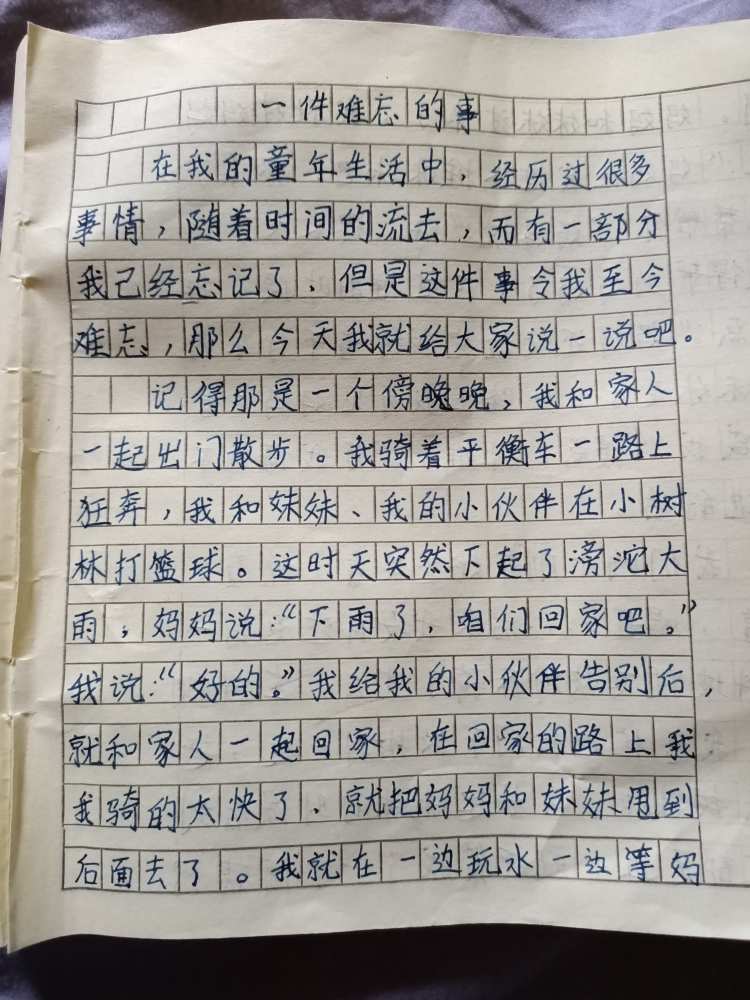 一件难忘的事
在我的童年生活中，经历过很多
事情，随着时间的流去，而有一部分
我已经忘记了、但是这件事令我至今
难忘，那么今天我就给大家说一说吧。
记得那是一个傍晚晚，我和家人
一起出门散步。我骑着平衡车一路上
狂奔，我和妹妹、我的小伙伴在小树
林打篮球。这时天突然下起了滂沱大
雨，妈妈说：“下雨了，咱们回家吧。”
我说：“好的。”我给我的小伙伴告别后，
就和家人一起回家，在回家的路上我
我骑的太快了、就把妈妈和妹妹甩到
后面去了。我就在一边玩水一边等妈